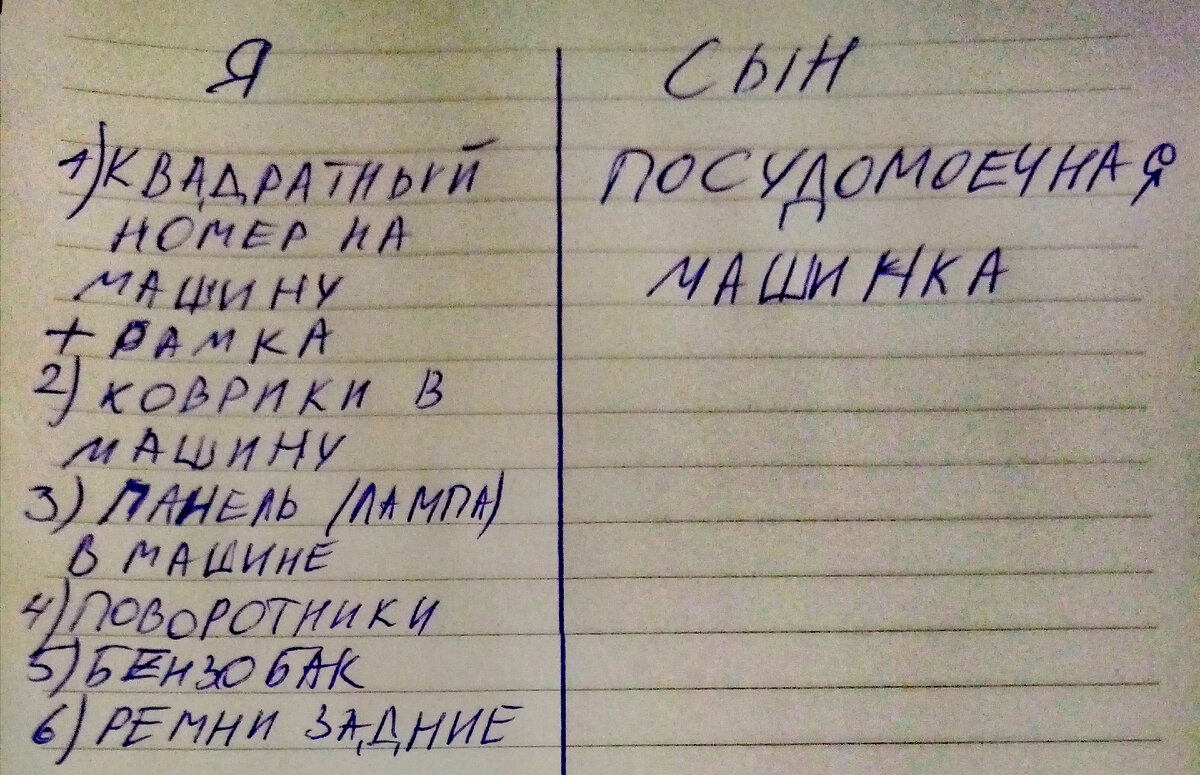 Я
1) КВАДРАТНЫЙ
НОМЕР НА
МАШИНУ
+ РАМКА
2) КОВРИКИ В
МАШИНУ
3) ПАНЕЛЬ (ЛАМПА)
В МАШИНЕ
4) ПОВОРОТНИКИ
5) БЕНЗОБАК
6) РЕМНИ ЗАДНИЕ
СЫН
ПОСУДОМОЕЧНАЯ
МАШИНКА